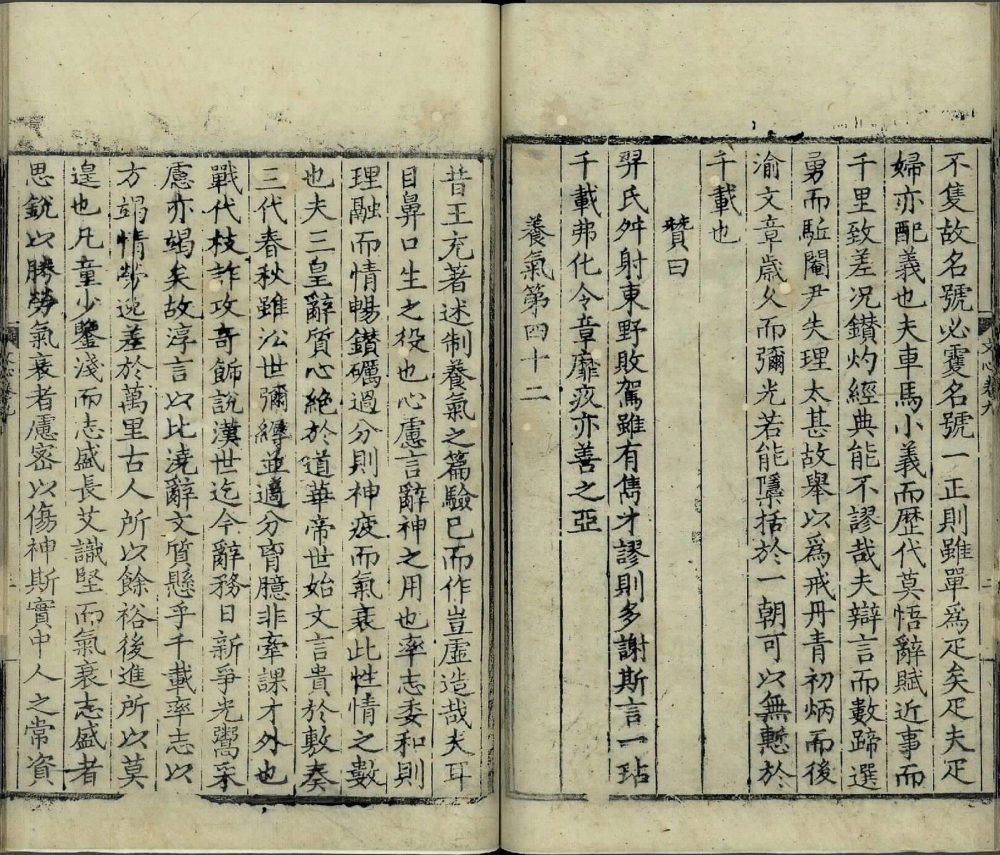 不隻故名號必雙名號一正則雖單爲疋矣疋夫疋
婦亦配義也夫車馬小義而歷代莫悟辭賦近事而
千里致差况鑚灼經典能不謬哉夫辯言而數蹄選
勇而駈閹尹失理太甚故舉以爲戒丹青初炳而後
渝文章歲久而彌光若能檃括於一朝可以無慙於
千載也
贊曰
羿氏舛射東野敗駕雖有儁才謬則多謝斯言一玷
千載弗化令章靡疚亦善之亞
養氣第四十二
昔王充著述制養氣之篇驗已而作豈虛造哉夫耳
目鼻口生之役也心慮言辭神之用也率志委和則
理融而情暢鑚礪過分則神疲而氣衰此性情之數
也夫三皇辭質心絶於道華帝世始文言貴於敷奏
三代春秋雖㳂世彌縟並適分胷臆非牽課才外也
戰代枝詐攻奇飾說漢世迄今辭務日新爭光鬻采
慮亦竭矣故淳言以比澆辭文質懸乎千載率志以
方竭情勞逸差於萬里古人所以餘裕後進所以莫
遑也凡童少鑒淺而志盛長艾識堅而氣衰志盛者
思銳以勝勞氣衰者慮密以傷神斯實中人之常資
文心卷九
二